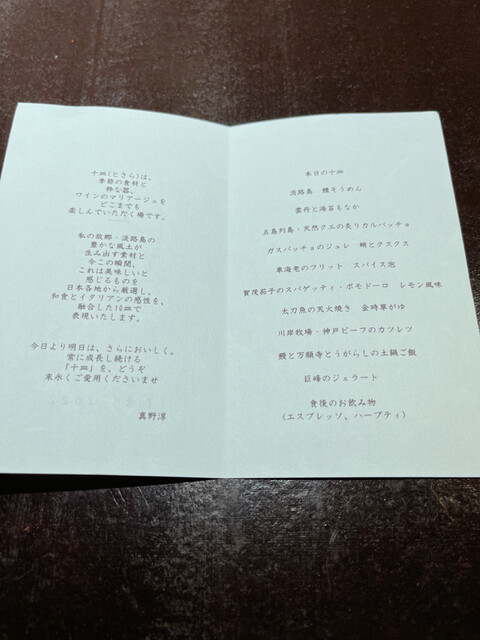 十皿(とさら)は、
季節の食材と
粋な器、
ワインのマリアージュを
どこまでも
楽しんでいただく場です。
私の故郷・淡路島の
豊かな風土が
生み出す素材と
今この瞬間、
これは美味しいと
感じるものを
日本各地から厳選し、
和食とイタリアンの感性を、
融合した10皿で
表現いたします。
今日より明日は、さらにおいしく。
常に成長し続ける
「十皿」を、どうぞ
末永くご愛用くださいませ
真野淳
本日の十皿
淡路島 鱧そうめん
雲丹と海苔もなか
五島列島・天然クエの炙りカルパッチョ
ガスパッチョのジュレ 蛸とクスクス
車海老のフリット スパイス泡
賀茂茄子のスパゲッティ・ポモドーロ レモン風味
太刀魚の天火焼き 金時草がゆ
川岸牧場・神戸ビーフのカツレツ
鰻と万願寺とうがらしの土鍋ご飯
巨峰のジェラート
食後のお飲み物
(エスプレッソ、ハーブティ)